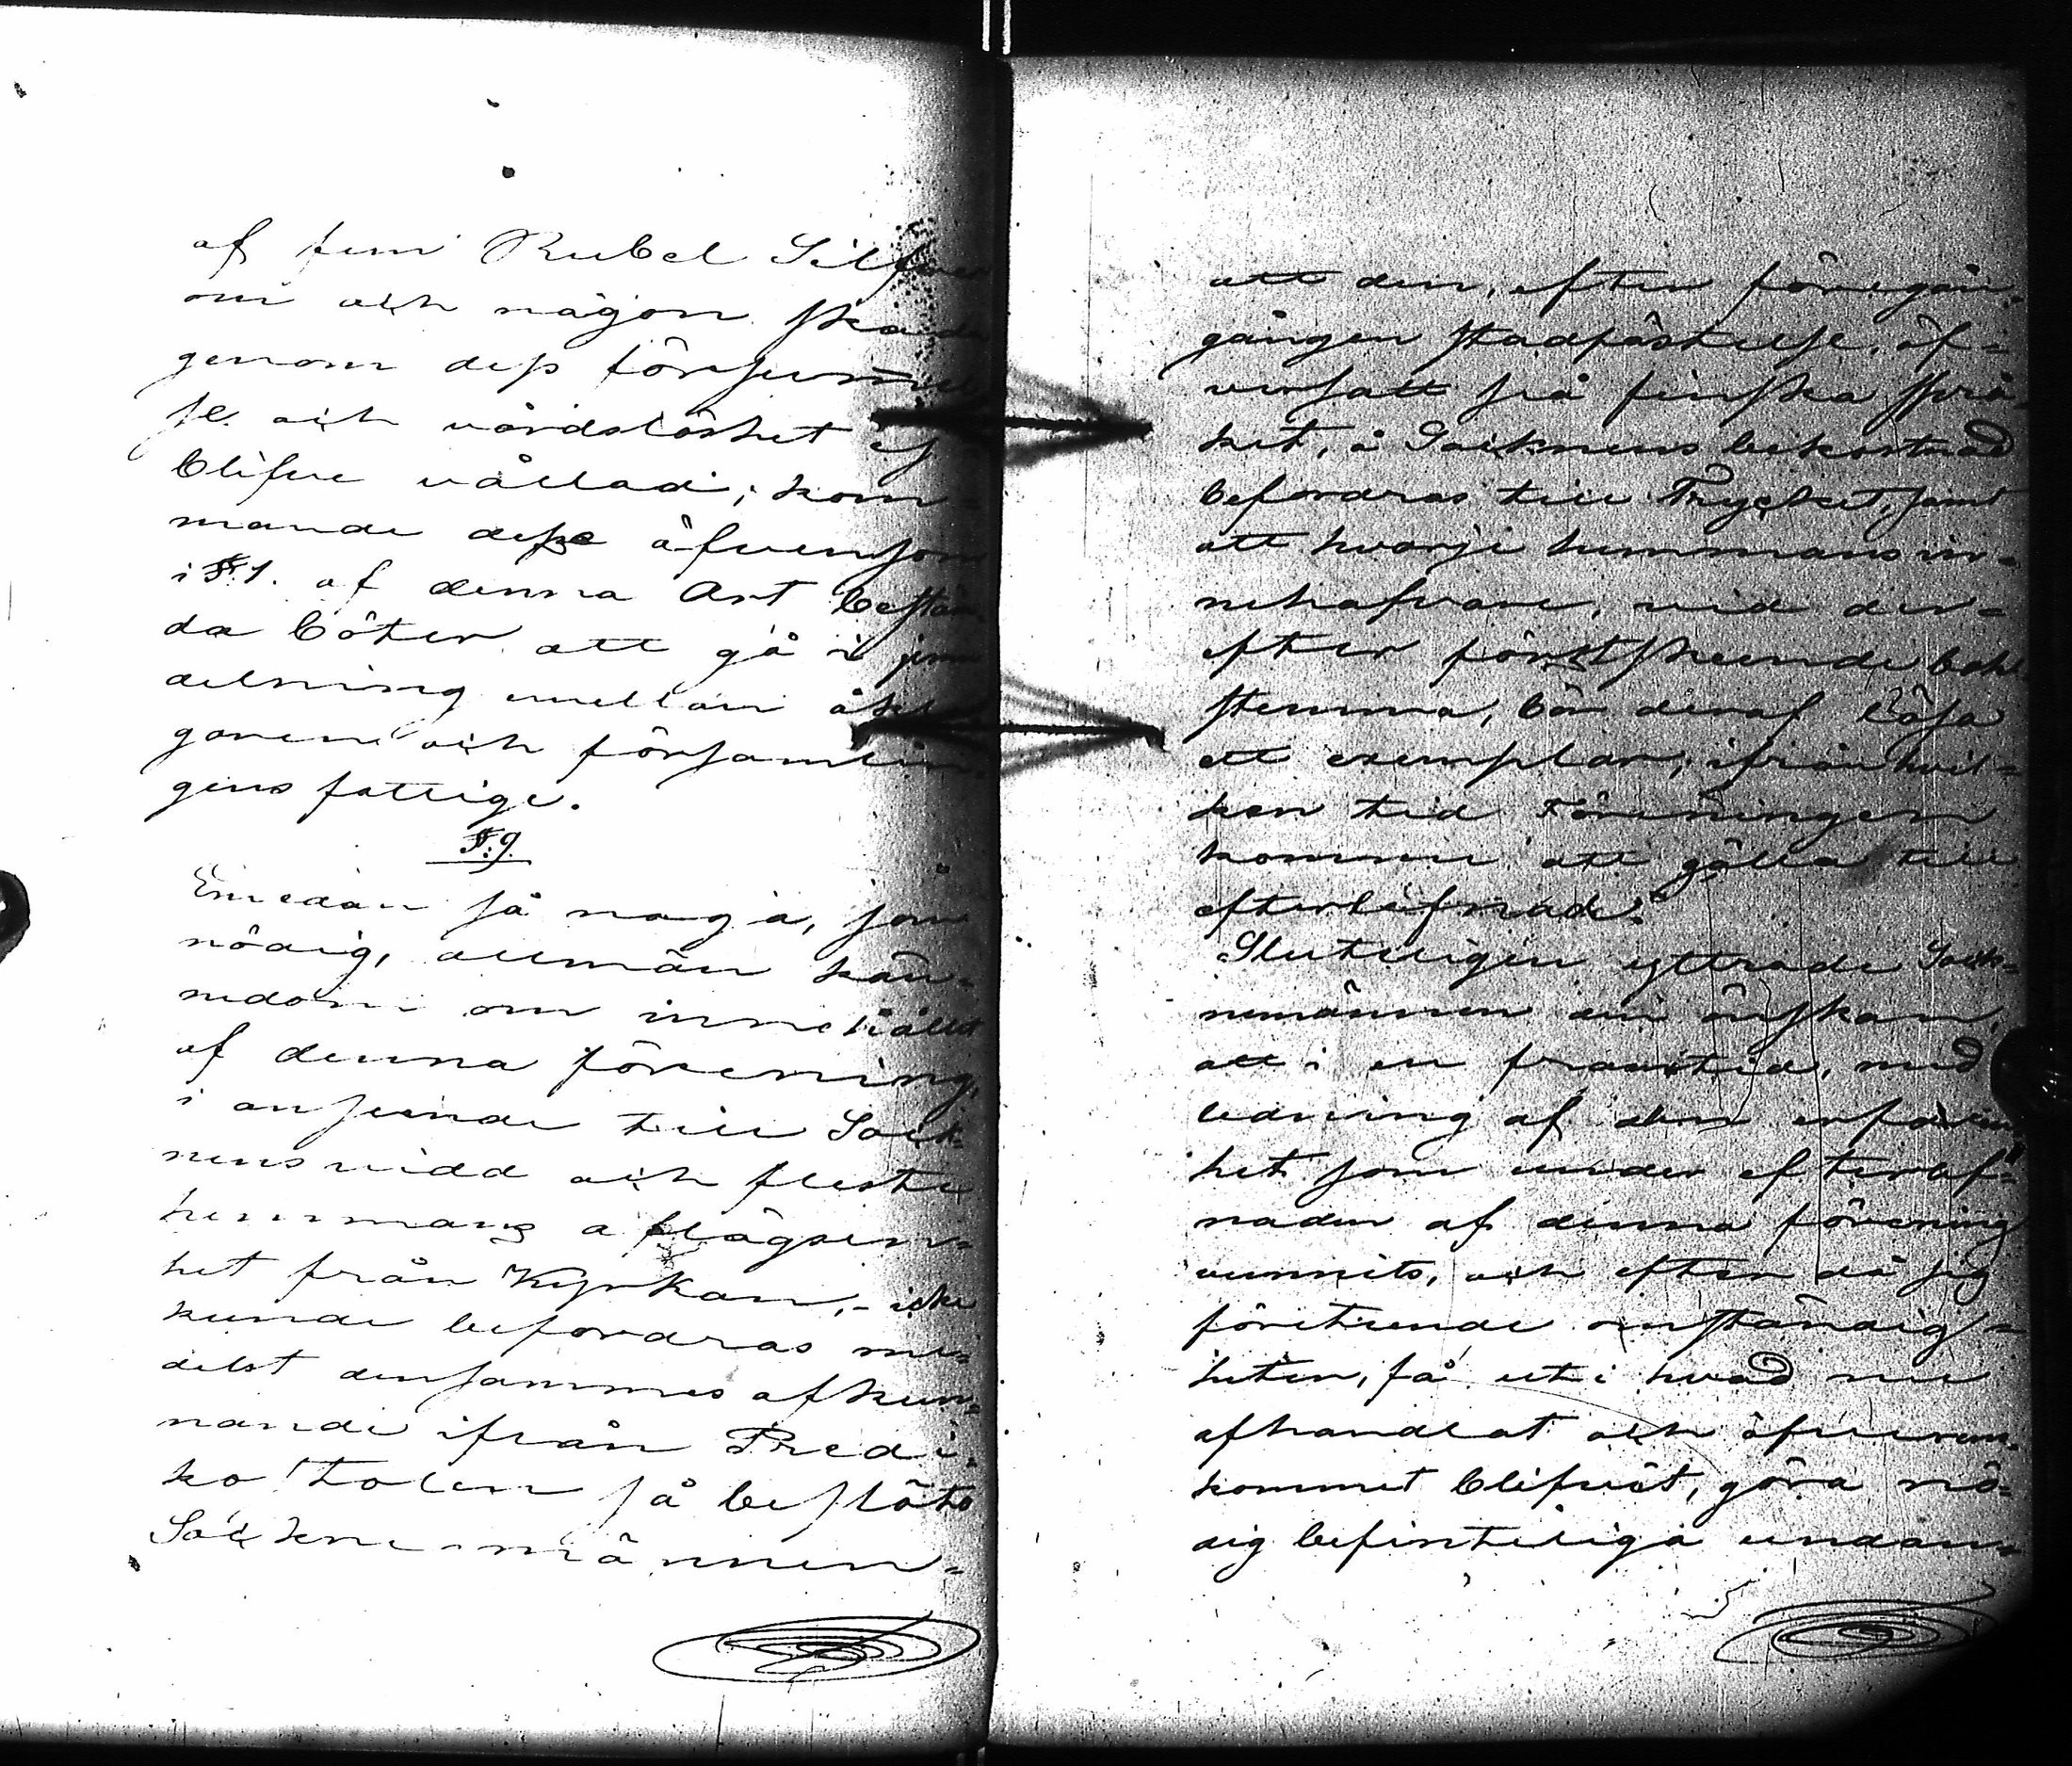 af fem Rubel Silfver
om och någon skada
genom dess försummel
se och vårdslöshet ej
blifve vållad; kom-
mande desse äfvensom
i §.1. af denna Art bestäm
da böter att gå i jem
delning emellan åkla
garen och församlin-
gens fattige.
§. 9.
Emedan så nogа, som
nödig, allmän kän-
nedom om innehållet
af denna förening,
i anseende till Sock-
nens vidd och fleste
hemmans aflägsen-
het från Kyrkan, - icke
kunde befordras me-
delst densammes afkun-
nande ifrån Predi-
kostolen så beslöto
Sockne-männen-
att den, efter föregån-
gången stadfästelse, öf-
versatt på finska språ-
ket, å Socknens bekostnad
befordras till Trycket, samt
att hvarje hemmans in-
nehafvare, vid der-
efter förstskeende
stemma, bör deraf lösa
ett exemplar, ifrån hvil-
ken tid Föreningen
kommer att gälla till
efterlefnad.
Slutligen yttrade Sock-
nemännen den önskan,
att i en framtid, med
ledning af den erfaren-
het som under efterlef-
naden af denna förening
vunnits, och efter då sig
företeende omständig-
heter, få uti hvad nu
afhandlat och öfverens-
kommet blifvit, göra nö-
dig befinteliga undan-